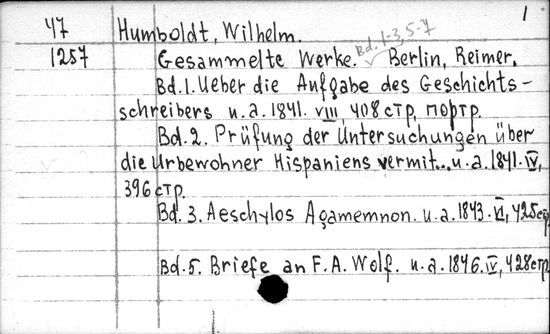 1
47 Humboldt, Wilhelm.
Bd. 1-3, 5-7
1257 Gesammelte Werke. Berlin, Reimer.
Bd. 1. Ueber die Aufgabe des Geschichts-
schreibers u. a. 1841. VIII, 408 стр, портр.
Bd. 2. Prüfung der Untersuchungen über
die Urbewohner Hispaniens vermit... u. a. 1841. IV,
396 стр.
Bd. 3. Aeschylos Agamemnon. u. a. 1843. VI, 425 стр.
Bd. 5. Briefe an F. A. Wolf. u. a. 1846. IV, 428 стр.